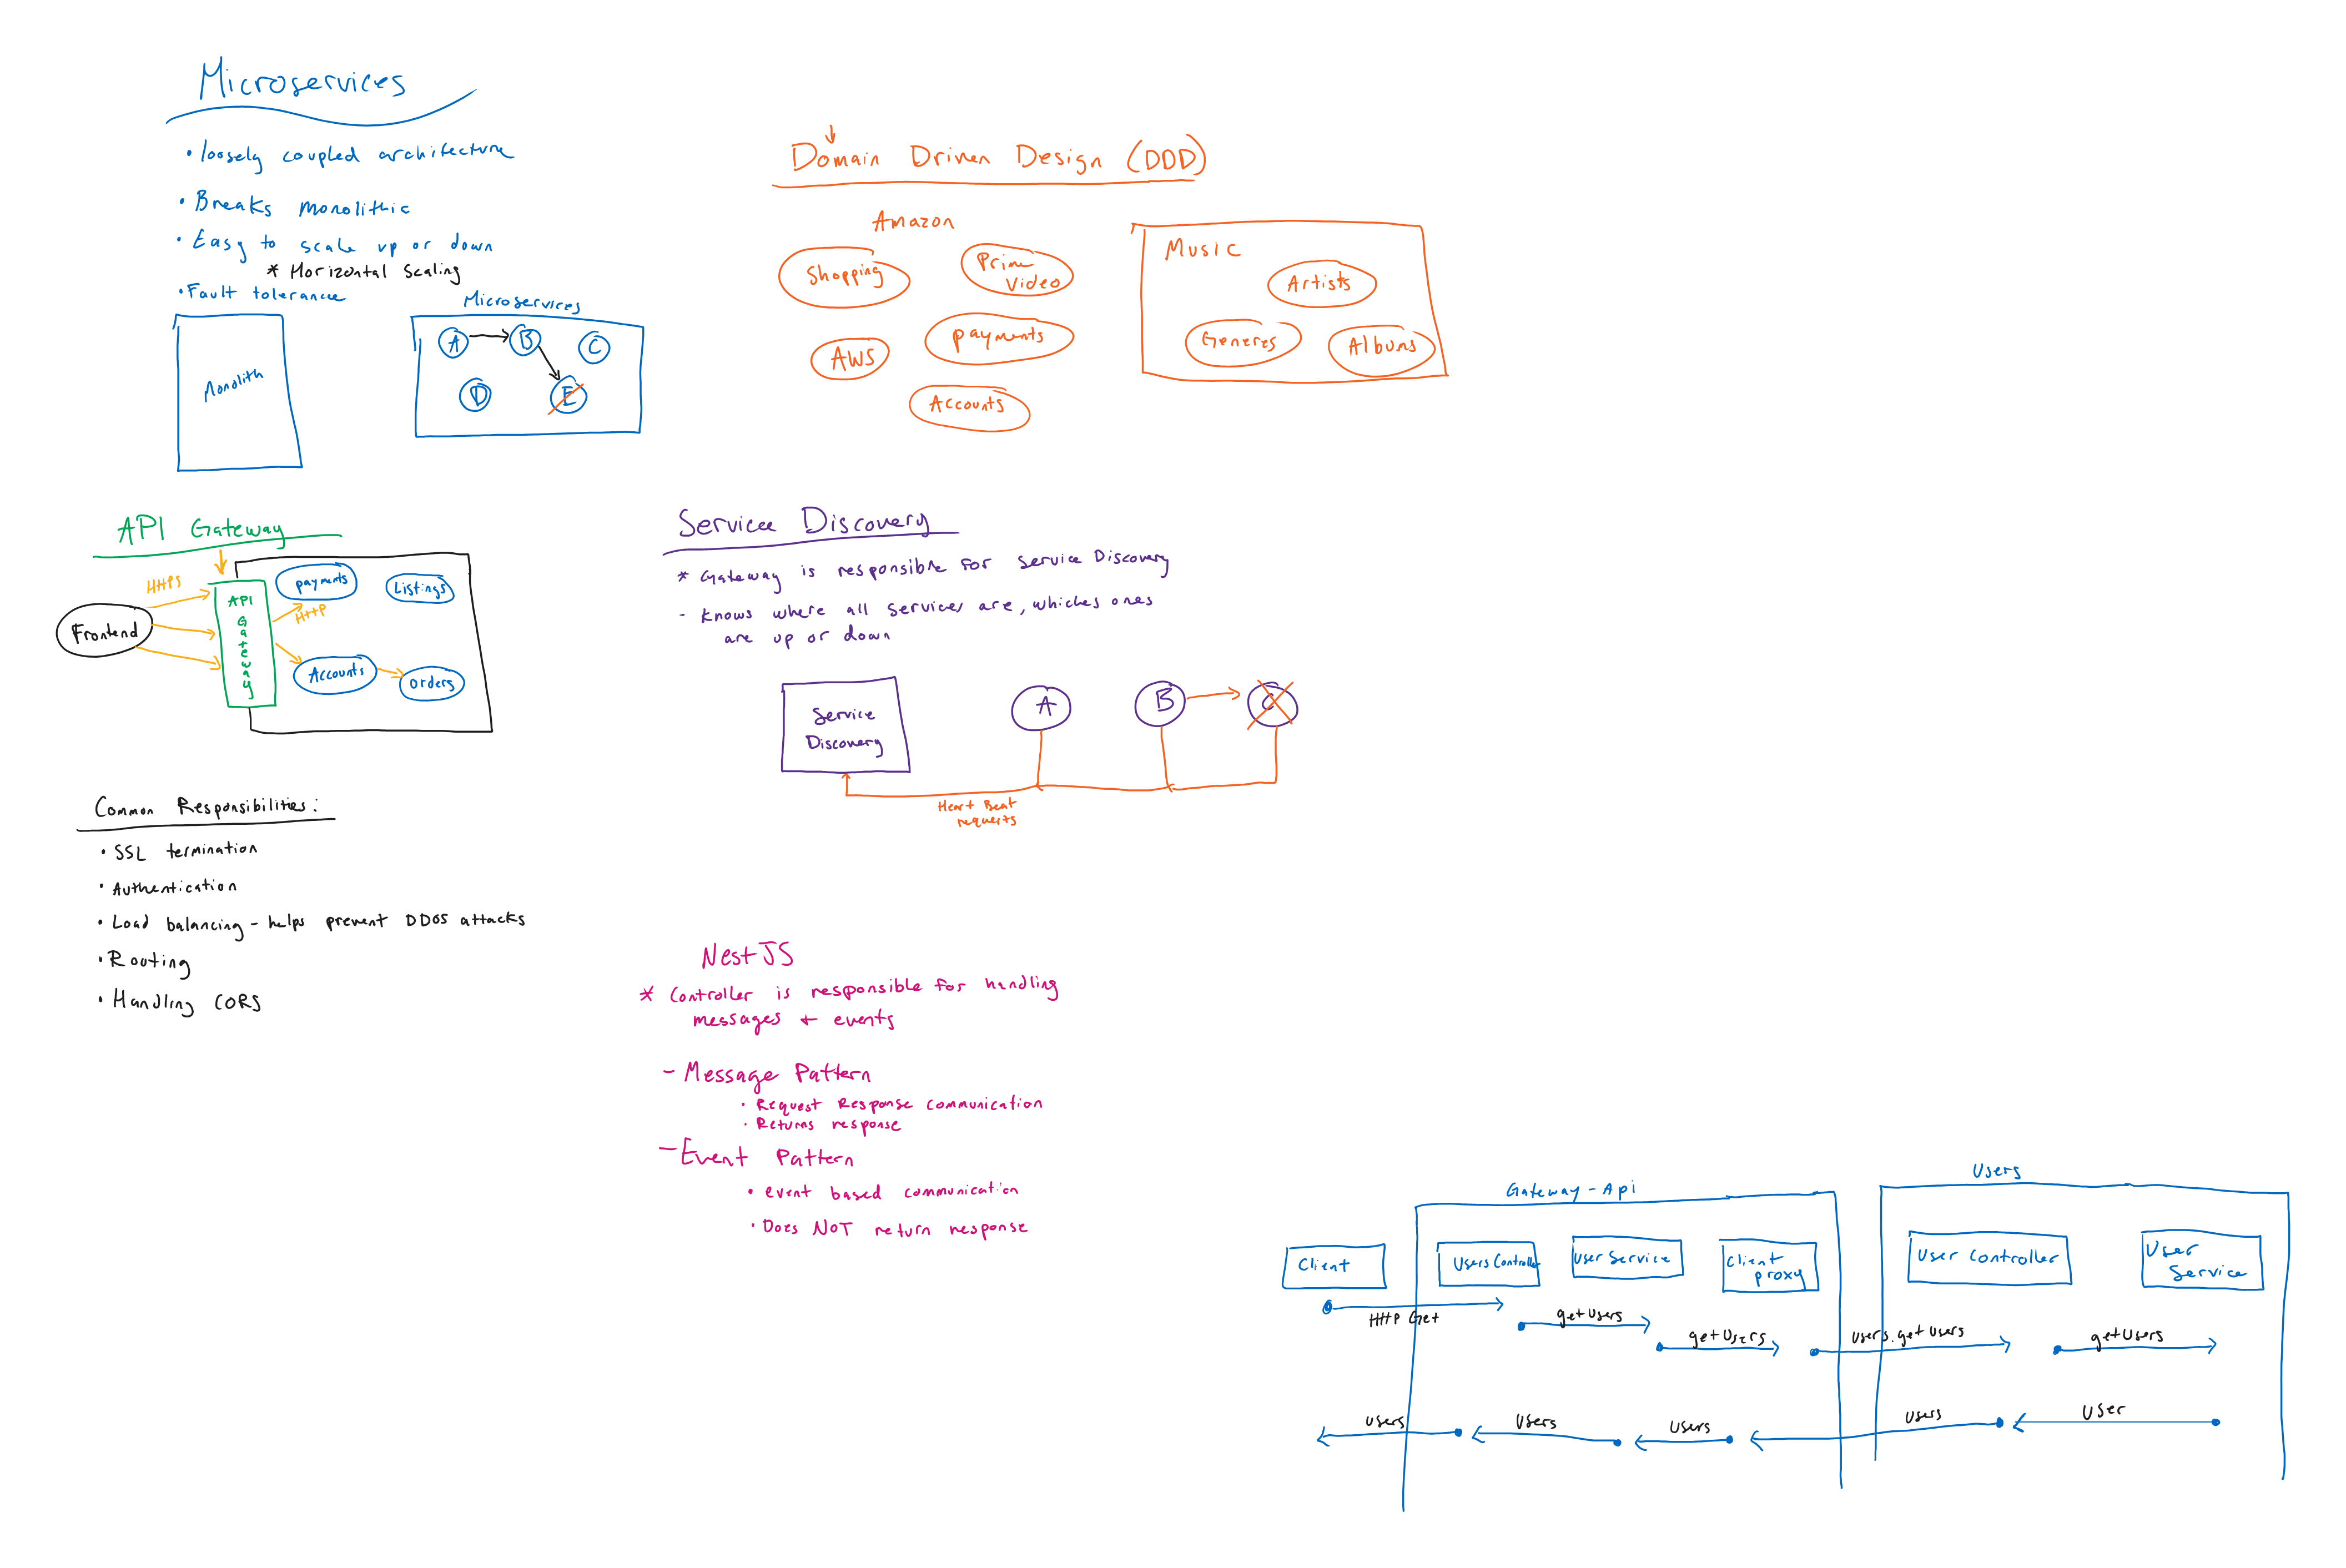 Microservices
• loosely coupled architecture
• Breaks monolithic
• Easy to scale up or down
* Horizontal Scaling
• Fault tolerance
Monolith
Microservices
A
B
C
D
E
Domain Driven Design (DDD)
Amazon
Shopping
Prime
Video
AWS
payments
Accounts
Music
Artists
Generes
Albums
API Gateway
HTTPS
Frontend
API
Gateway
HTTP
payments
Listings
Accounts
orders
Common Responsibilities:
• SSL termination
• Authentication
• Load balancing - helps prevent DDOS attacks
• Routing
• Handling CORS
Service Discovery
* Gateway is responsible for service Discovery
- knows where all services are, whiches ones
are up or down
Service
Discovery
A
B
C
Heart Beat
requests
NestJS
* Controller is responsible for handling
messages + events
- Message Pattern
• Request Response communication
• Returns response
- Event Pattern
• event based communication
• Does NOT return response
Gateway - Api
Users
Client
Users Controller
User Service
Client
proxy
User Controller
User
Service
HTTP Get
getUsers
getUsers
users.getUsers
getUsers
users
Users
Users
users
User